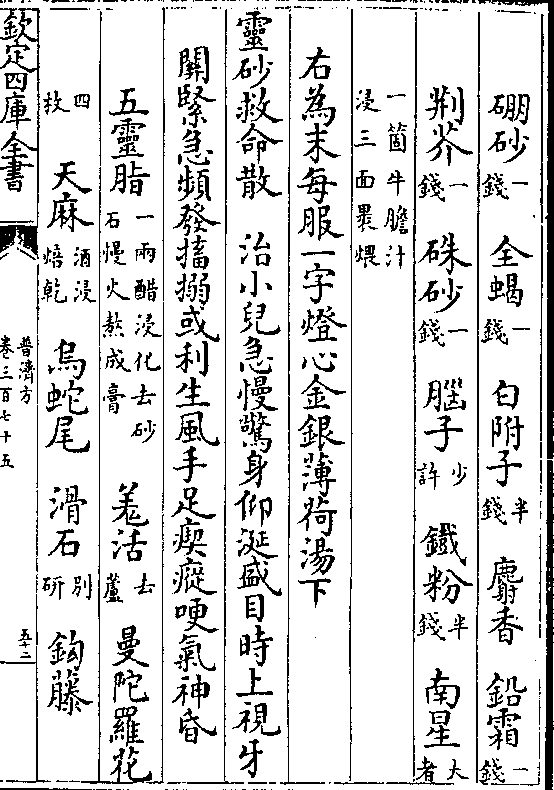 硼砂一錢　全蝎一錢　白附子半錢　麝香　鉛霜一錢
荆芥一錢　硃砂一錢　腦子少許　鐵粉半錢　南星大者
一箇牛膽汁浸三面褁煨
右為末每服一字燈心金銀薄荷湯下
靈砂救命散　治小兒急慢驚身仰涎盛目時上視牙
關緊急頻發搐搦或利生風手足瘈瘲哽氣神昏
五靈脂一兩醋浸化去砂石慢火熬成膏　羗活去蘆　曼陀羅花
四枚　天麻酒浸焙乾　烏蛇尾　滑石别研　鈎藤
欽定四庫全書
普濟方
卷三百七十五
五十二